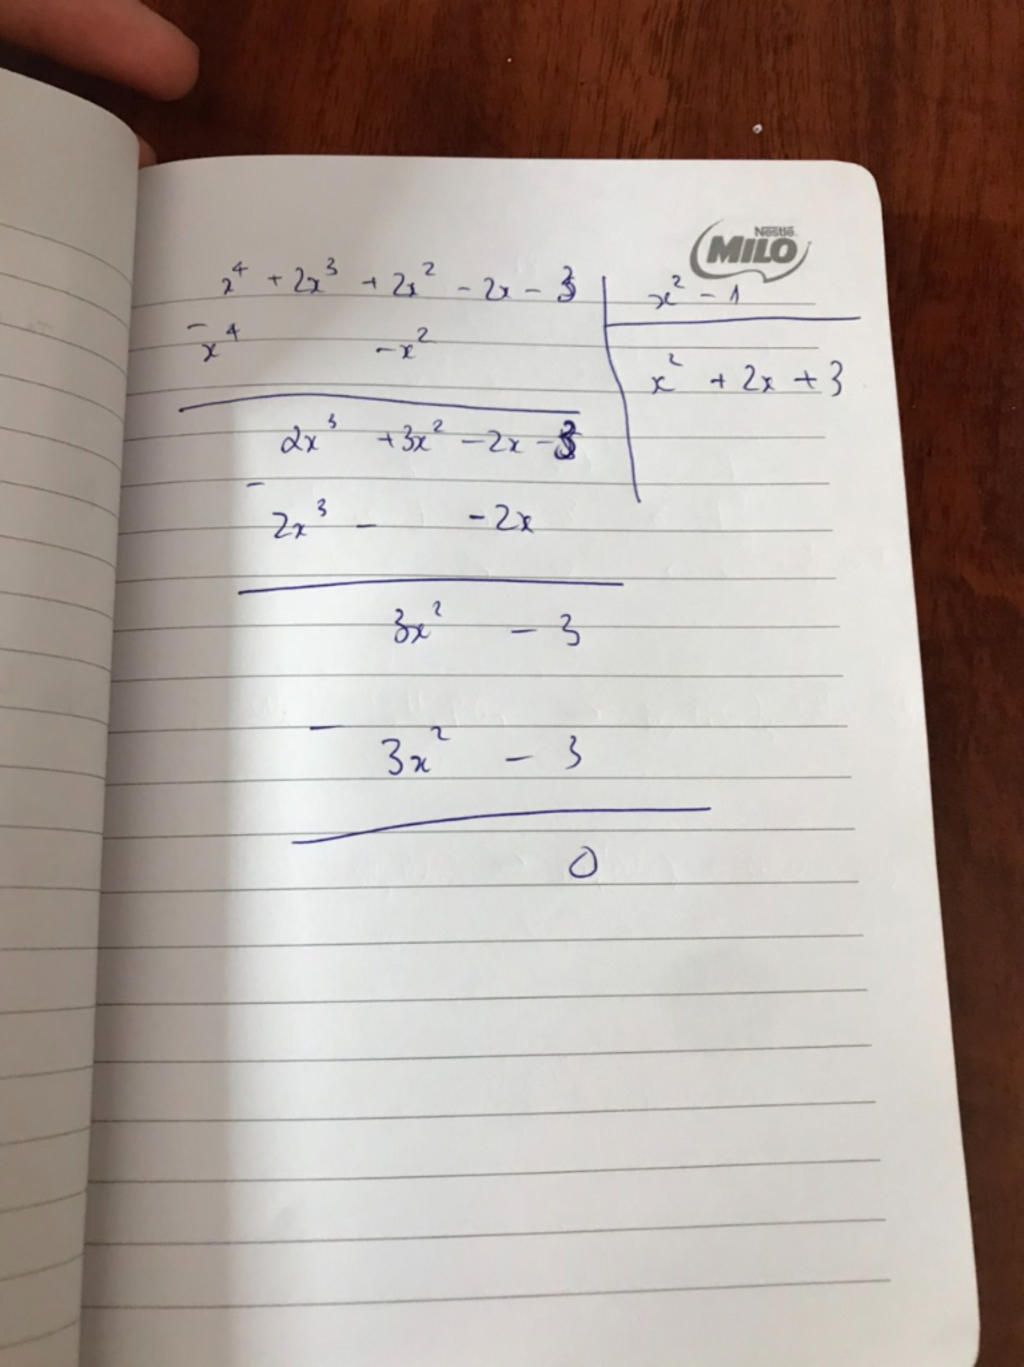 Nestlé
MILO
x⁴ + 2x³ + 2x² - 2x - 3
x² - 1
- x⁴ - x²
x² + 2x + 3
2x³ + 3x² - 2x - 3
- 2x³ - - 2x
3x² - 3
- 3x² - 3
0